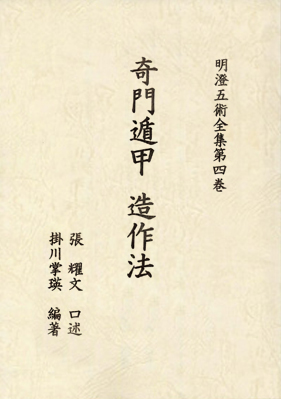 明澄五術全集第四巻
奇門遁甲 造作法
張 耀文 口述
掛川掌瑛 編著